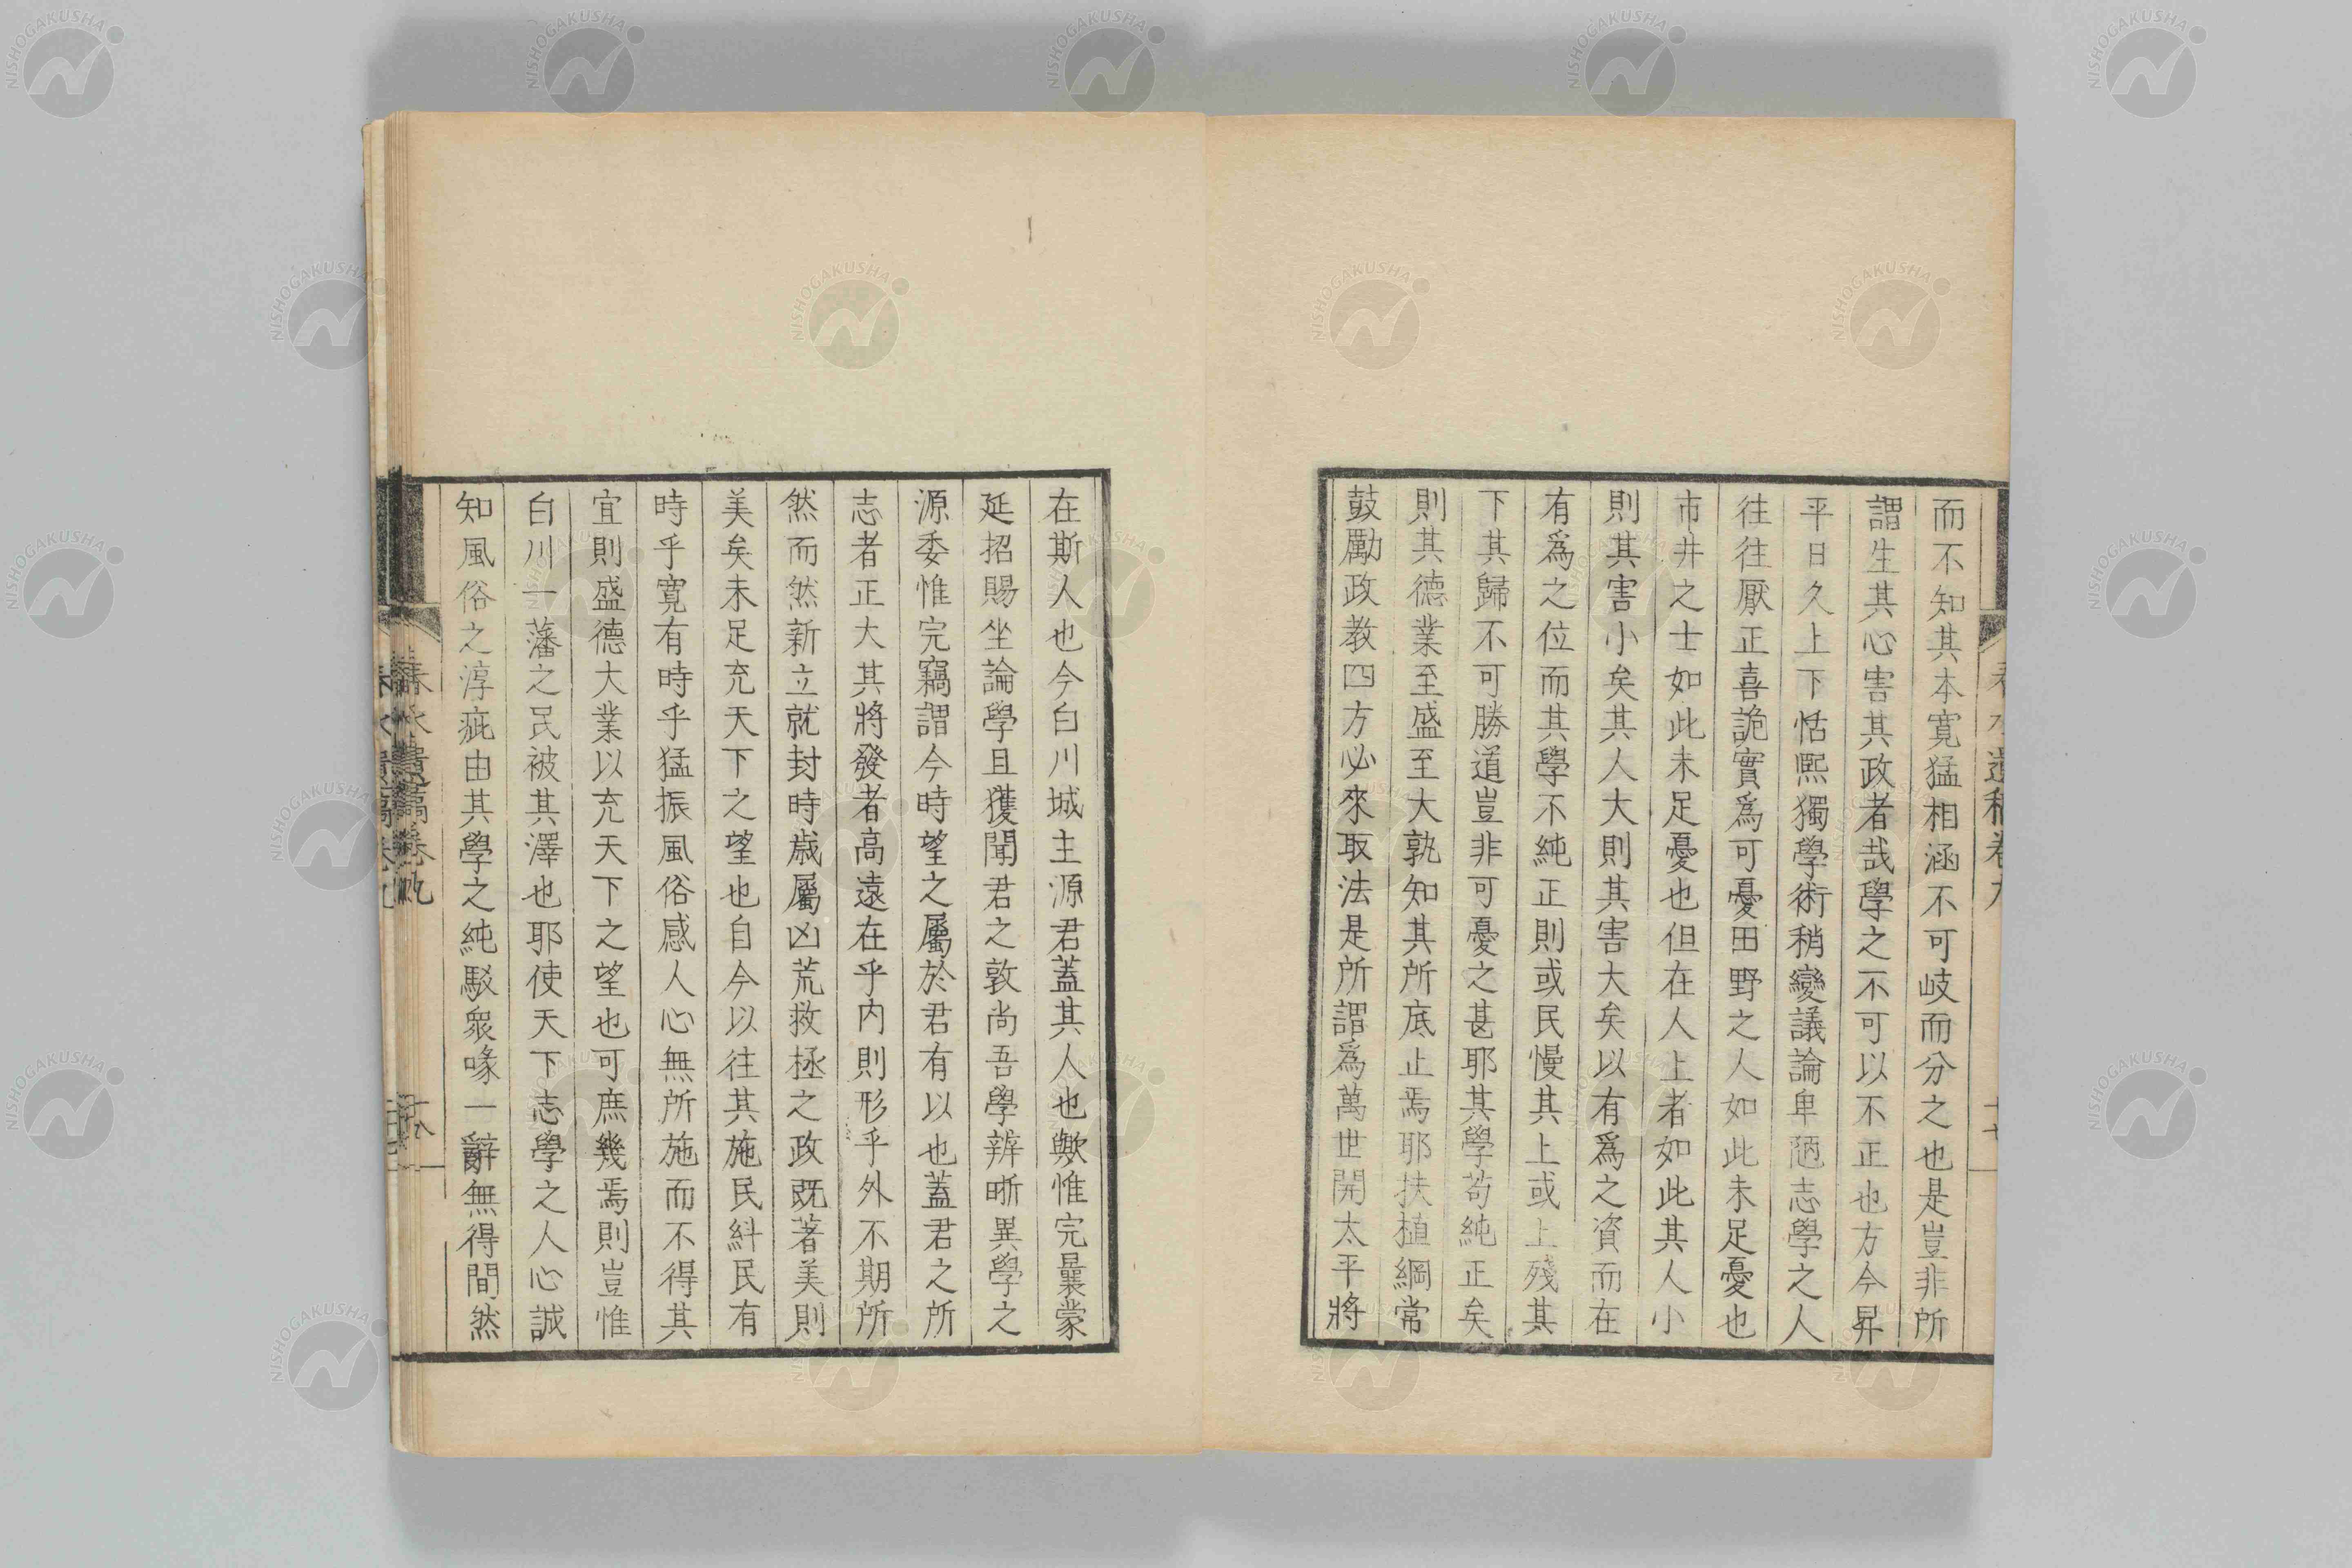 而不知其本寛猛相涵不可岐而分之也是豈非所
謂生其心害其政者哉學之不可以不正也方今昇
平日久上下恬熙獨學術稍變議論卑陋志學之人
往往厭正喜詭實爲可憂田野之人如此未足憂也
市井之士如此未足憂也但在人上者如此其人小
則其害小矣其人大則其害大矣以有爲之資而在
有爲之位而其學不純正則或民慢其上或上殘其
下其歸不可勝道豈非可憂之甚耶其學苟純正矣
則其德業至盛至大孰知其所底止焉耶扶植綱常
鼓勵政教四方必來取法是所謂爲萬世開太平將
在斯人也今白川城主源君蓋其人也歟惟完曩蒙
延招賜坐論學且獲聞君之敦尚吾學辨晣異學之
源委惟完竊謂今時望之屬於君有以也蓋君之所
志者正大其將發者高遠在乎内則形乎外不期所
然而然新立就封時歳屬凶荒救拯之政既著美則
美矣未足充天下之望也自今以往其施民糾民有
時乎寛有時乎猛振風俗感人心無所施而不得其
宜則盛德大業以充天下之望也可庶幾焉則豈惟
白川一藩之民被其澤也耶使天下志學之人心誠
知風俗之淳疵由其學之純駁衆喙一辭無得間然
春水遺稿卷九
十七
春水遺稿卷九
十八
NISHOGAKUSHA